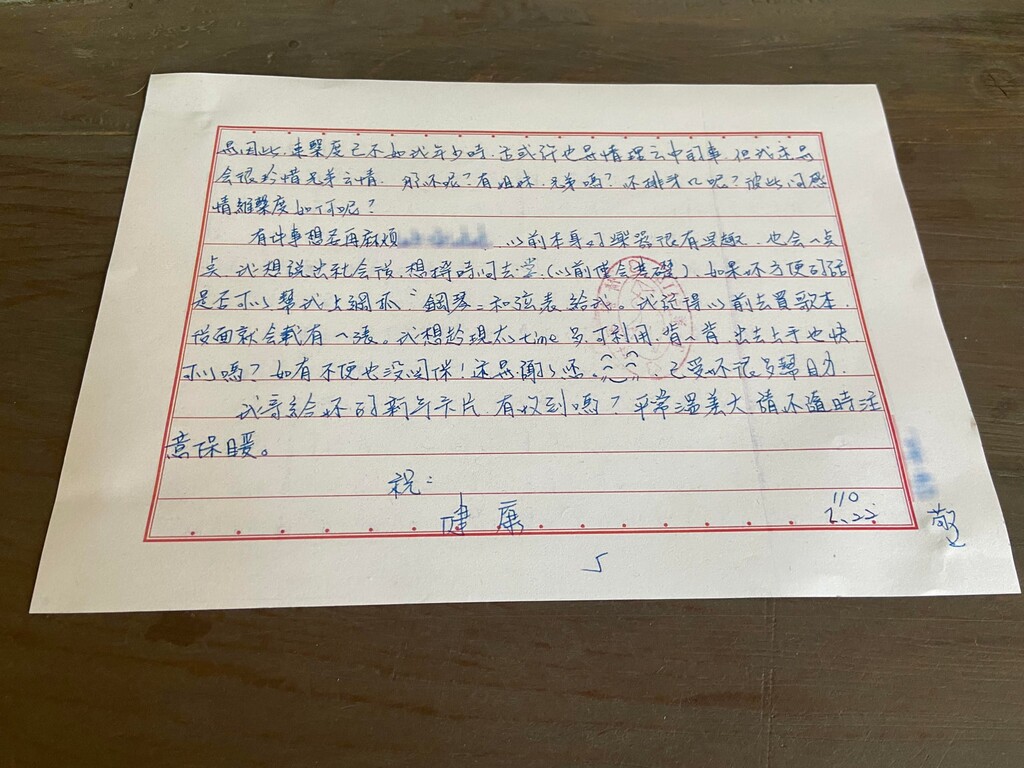 是因此,連繫度已不如我年少時,這或許也是情理之中的事,但我還是
會很珍惜兄弟之情,那你呢?有姐妹、兄弟嗎?不排斥口呢?彼此间感
情維繫度如何呢?
有件事想要再麻煩 以前本身对樂器很有興趣,也會一点
点,我想說出社會後,想擇時间去學(以前僅會基礎),如果你方便的話
是否可以幫我上網抓“鋼琴”和弦表給我,我记得以前去買歌本,
後面就會載有一張。我想趁現在time多,可利用,背一背,出去上手也快,
可以嗎?如有不便也没関係!還是謝謝您, 已受你很多幫助,
我寄給你的新年卡片,有收到嗎?平常溫差大,請你隨時注
意保暖。
祝:
健康
110
2.22
敬
5